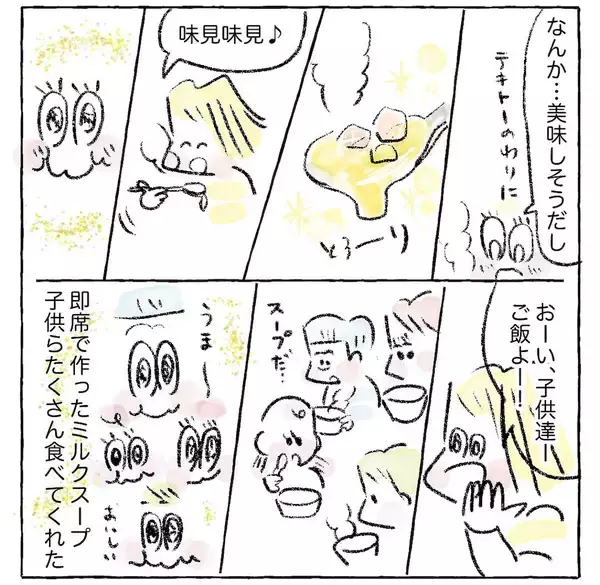 なんか…美味しそうだし
テキトーのわりに
とろーり
味見味見♪
おーい、子供達ー
ご飯よー!!
スープだ…
うまー
おいしい
即席で作ったミルクスープ
子供らたくさん食べてくれた